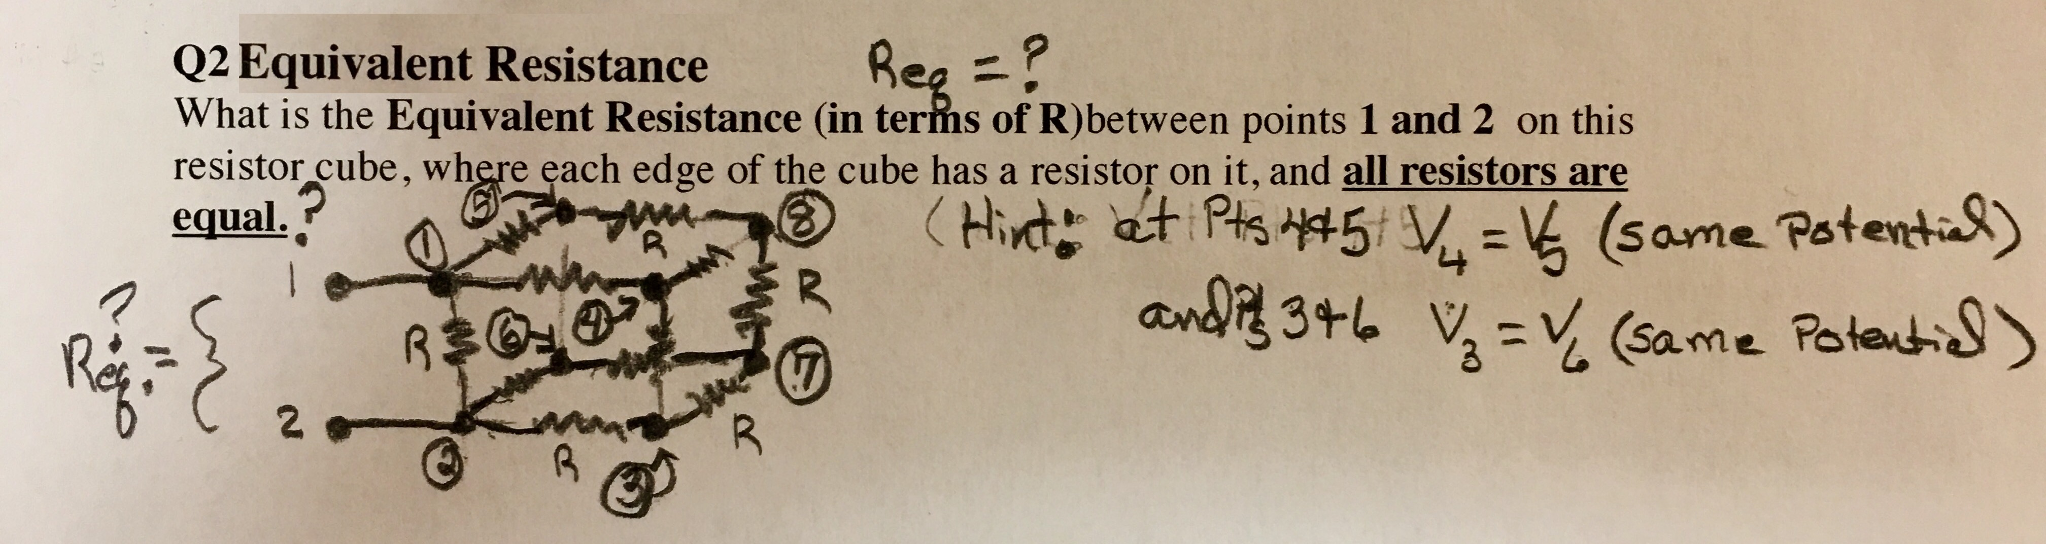 Q2 Equivalent Resistance Req = ?
What is the Equivalent Resistance (in terms of R)between points 1 and 2 on this
resistor cube, where each edge of the cube has a resistor on it, and all resistors are
equal.?
(Hint: at Pts 4+5 V4 = V5 (same Potential)
and Pts 3+6 V3 = V6 (same Potential)
5
8
1
R
1
R
6
4
R
Req. = {
?
7
2
R
R
2
3